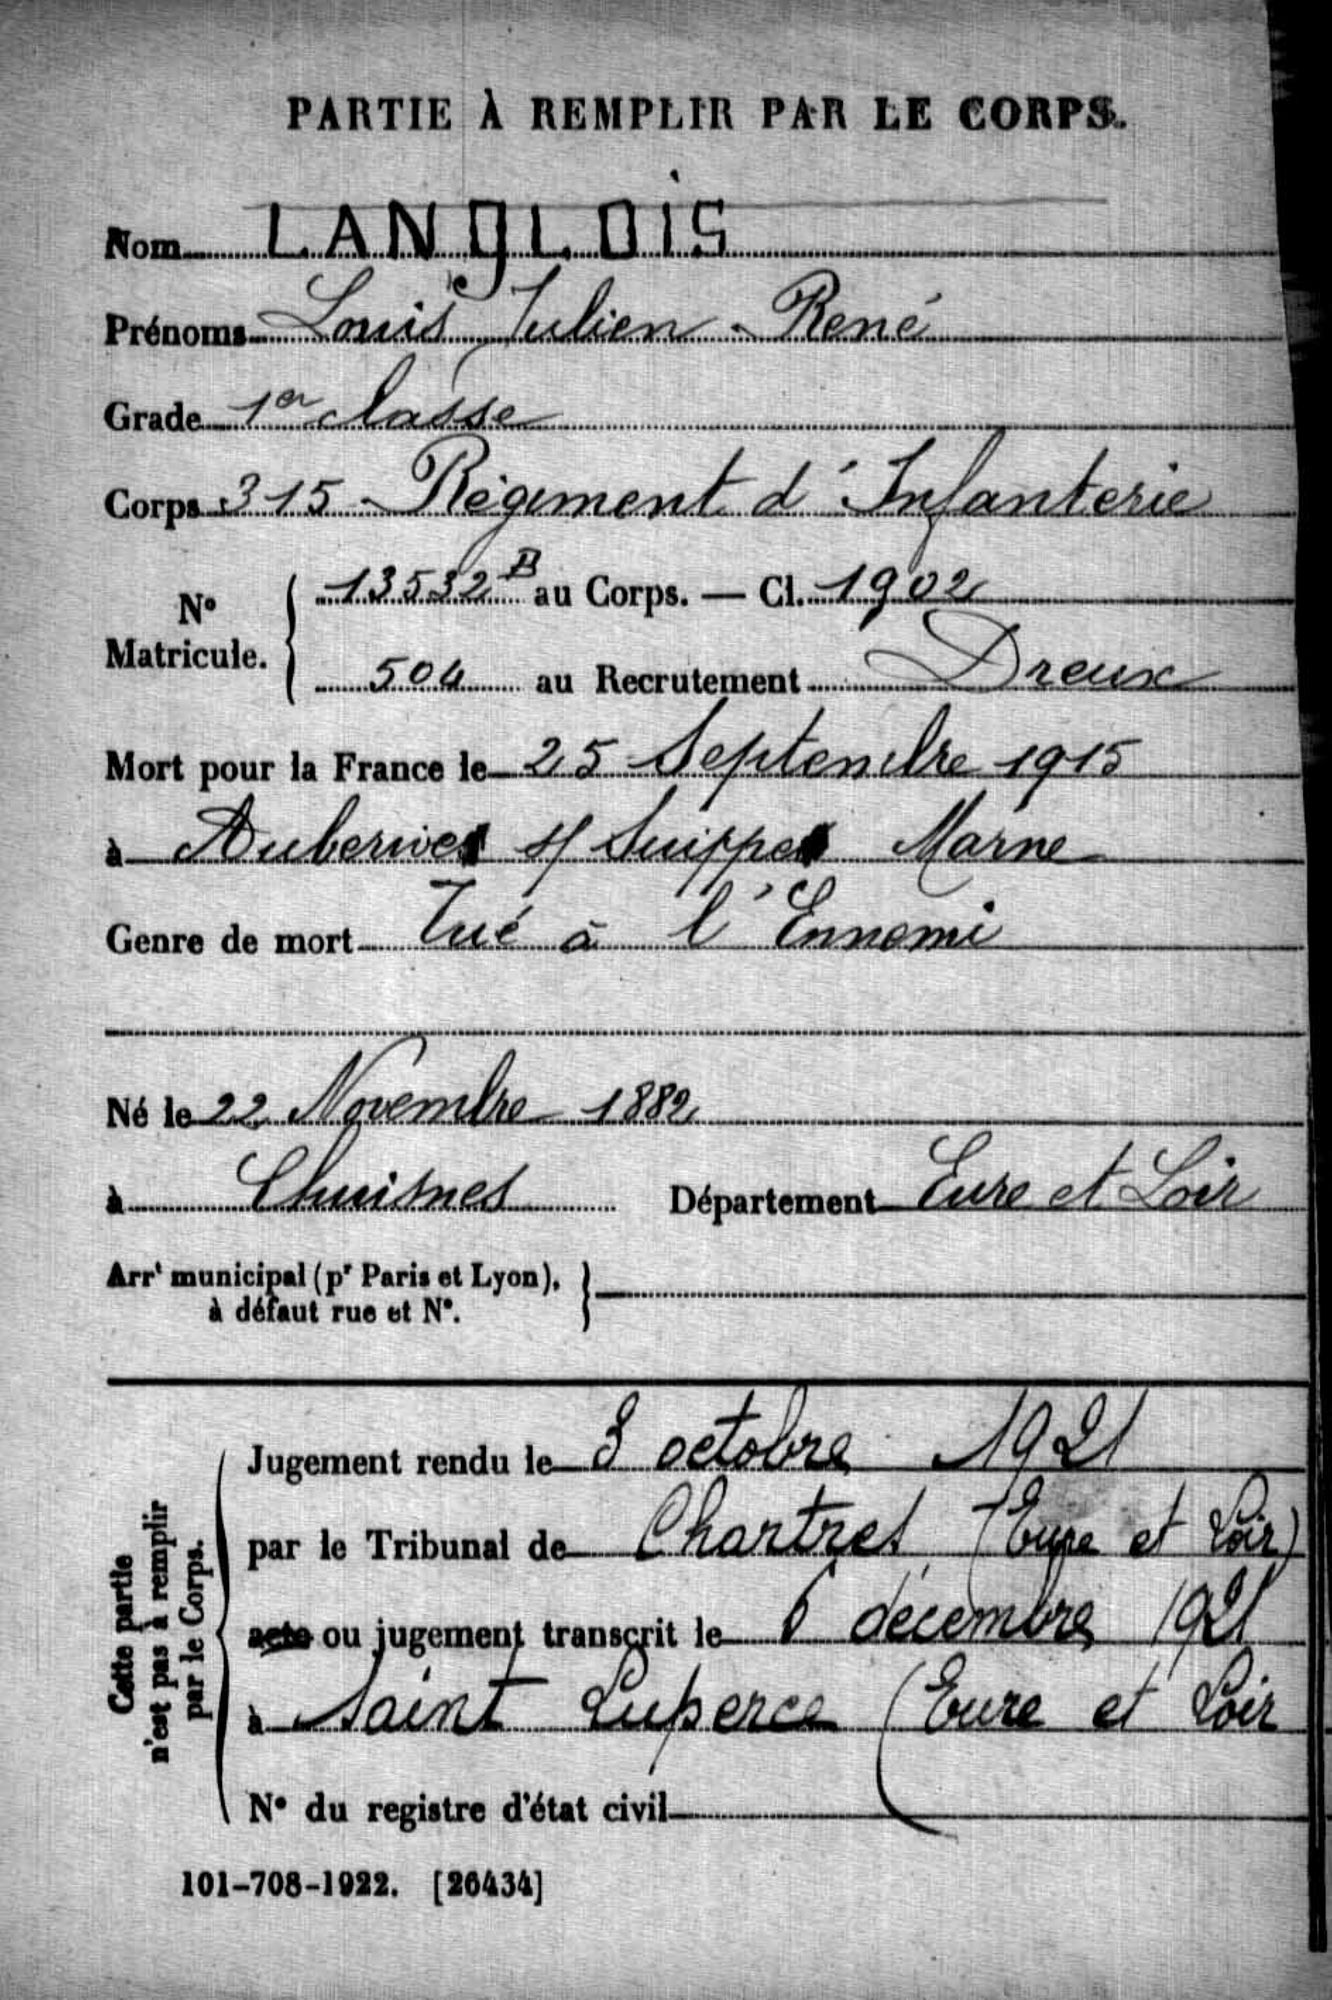 PARTIE À REMPLIR PAR LE CORPS.
Nom LANGLOIS
Prénoms Louis Julien - René
Grade 1er classe
Corps 315 - Régiment d'Infanterie
N° Matricule. 13532 B au Corps. — Cl. 1902
504 au Recrutement Dreux
Mort pour la France le 25 Septembre 1915
à Auberive s/ Suippe Marne
Genre de mort Tué à l'Ennemi
Né le 22 Novembre 1882
à Chuisnes Département Eure et Loir
Arrt municipal (pr Paris et Lyon),
à défaut rue et N°.
Cette partie
n'est pas à remplir
par le Corps.
Jugement rendu le 3 octobre 1921
par le Tribunal de Chartres (Eure et Loir)
acte ou jugement transcrit le 6 décembre 1921
à Saint Luperce (Eure et Loir
N° du registre d'état civil
101-708-1922. [26434]